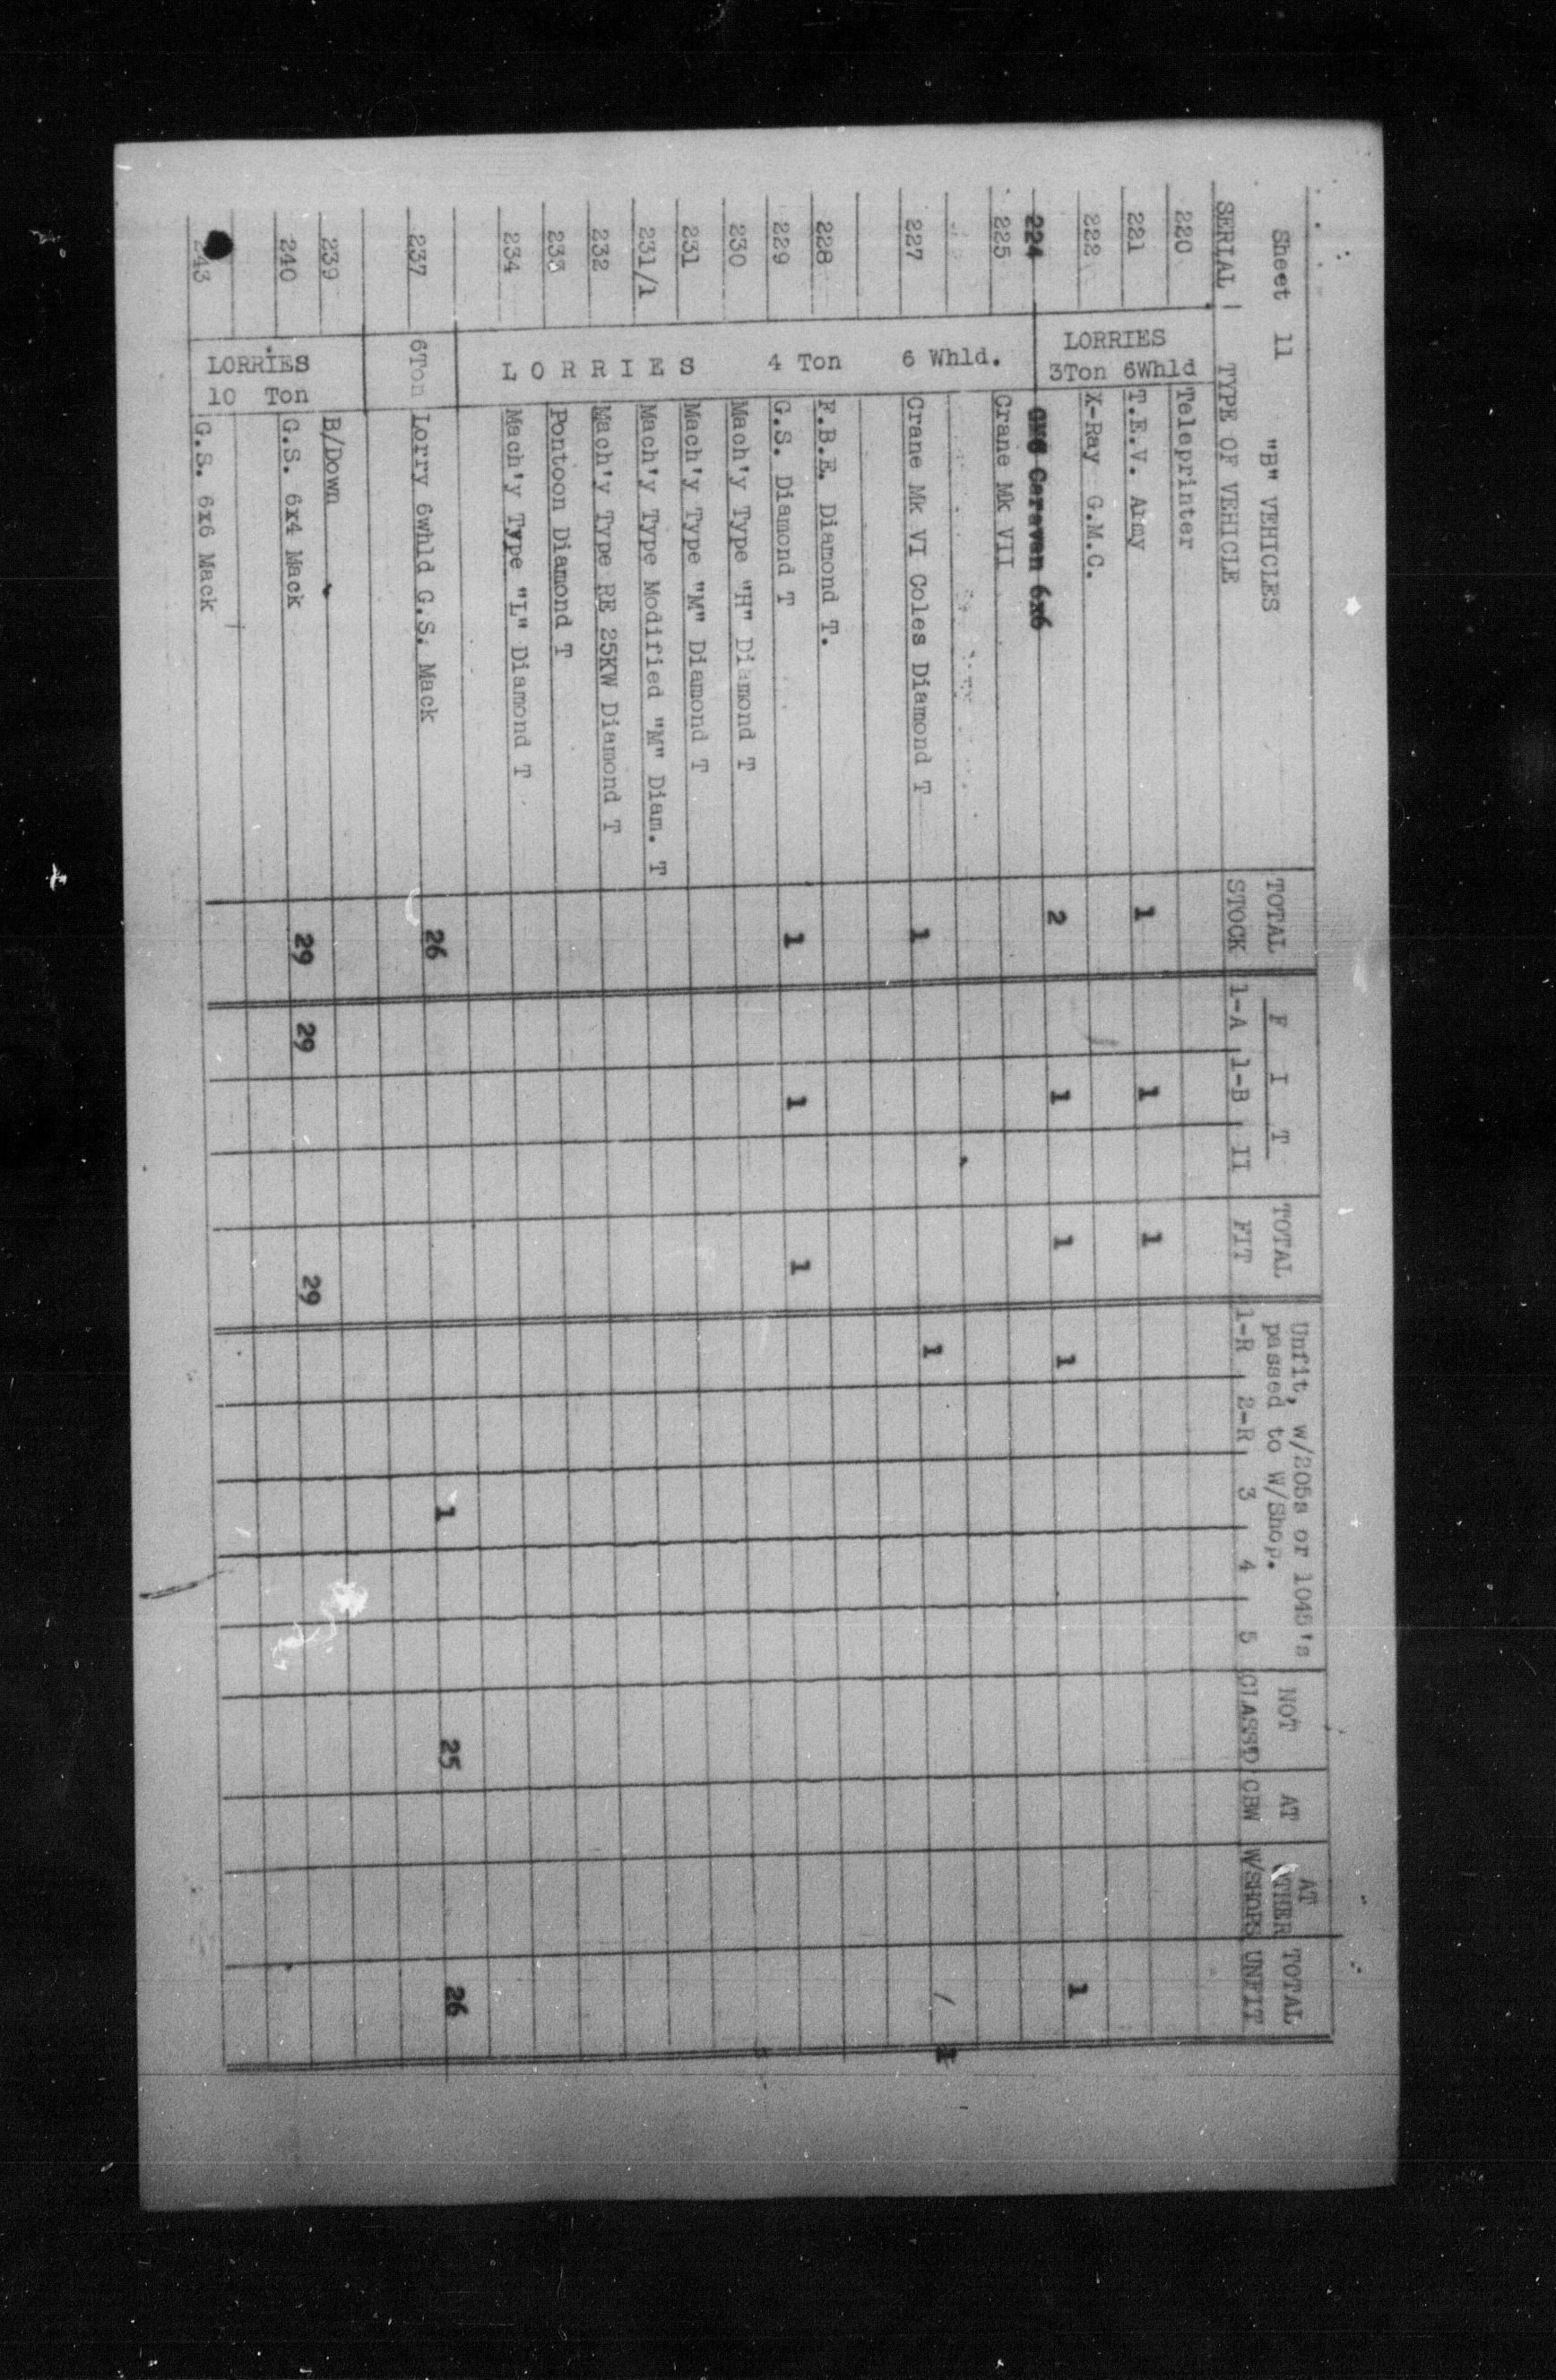 Sheet 11 "B" VEHICLES
TOTAL F I T TOTAL Unfit, w/205s or 1045's NOT AT AT TOTAL
passed to W/Shop. OTHER
SERIAL TYPE OF VEHICLE STOCK 1-A 1-B II FIT 1-R 2-R 3 4 5 CLASS'D CBW W/SHOPS UNFIT
LORRIES
3Ton 6Whld
220 Teleprinter
221 T.E.V. Army 1 1 1
222 X-Ray G.M.C.
224 GMC Caravan 6x6 2 1 1 1 1
LORRIES 4 Ton 6 Whld.
225 Crane Mk VII
227 Crane Mk VI Coles Diamond T 1 1 1
228 F.B.E. Diamond T.
229 G.S. Diamond T 1 1 1
230 Mach'y Type "H" Diamond T
231 Mach'y Type "M" Diamond T
231/1 Mach'y Type Modified "M" Diam. T
232 Mach'y Type RE 25KW Diamond T
233 Pontoon Diamond T
234 Mach'y Type "L" Diamond T
237 6Ton Lorry 6whld G.S. Mack 26 1 25 26
LORRIES
10 Ton
239 B/Down
240 G.S. 6x4 Mack 29 29 29
243 G.S. 6x6 Mack